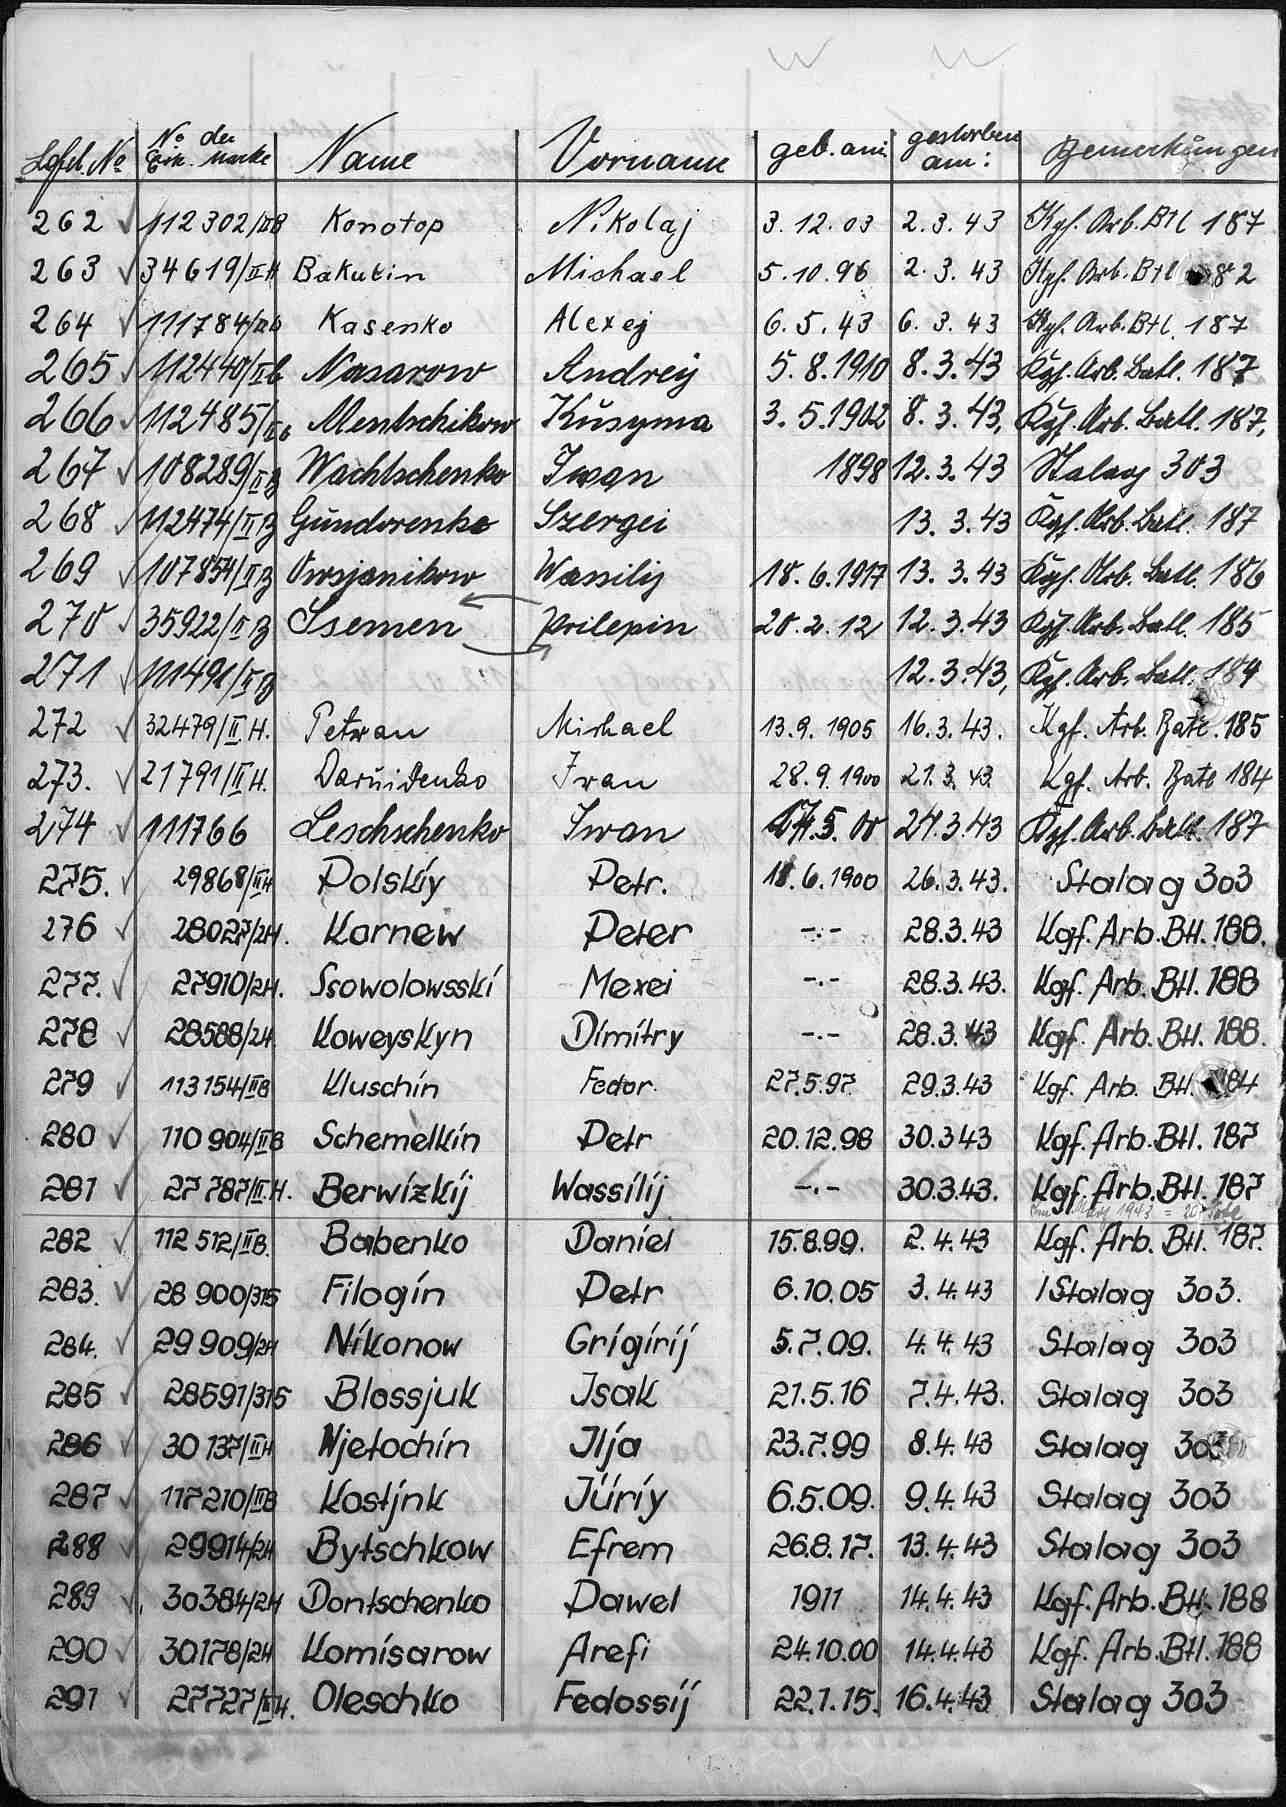 Lgfd. No No der Erk. Marke Name Vorname geb. am gestorben am: Bemerkungen
262 ✓ 112302/IIB Konotop Nikolaj 3.12.03 2.3.43 Kgf. Arb. Btl 187
263 ✓ 34619/IIH Bakutin Michael 5.10.96 2.3.43 Kgf. Arb. Btl 82
264 ✓ 111784/IIb Kasenko Alexej 6.5.43 6.3.43 Kgf. Arb. Btl. 187
265 ✓ 112440/IIb Nasarow Andrey 5.8.1910 8.3.43 Kgf. Arb. Batl. 187
266 ✓ 112485/IIb Mentschikow Kusyma 3.5.1902 8.3.43, Kgf. Arb. Batl. 187,
267 ✓ 108289/IIB Wachtschenko Iwan 1898 12.3.43 Stalag 303
268 ✓ 112474/IIB Gundorenko Szergei 13.3.43 Kgf. Arb. Batl. 187
269 ✓ 107854/IIB Owsjanikow Wassilij 18.6.1917 13.3.43 Kgf. Arb. Batl. 186
270 ✓ 35922/IIB Ssemen Prilepin 20.2.12 12.3.43 Kgf. Arb. Batl. 185
271 ✓ 111491/IIB 12.3.43, Kgf. Arb. Batl. 184
272 ✓ 32479/II H. Petran Michael 13.9.1905 16.3.43. Kgf. Arb. Batl. 185
273. ✓ 21791/II H. Iwan 28.9.1900 21.3.43 Kgf. Arb. Batl 184
274 ✓ 111766 Leschschenko Iwan 00 24.3.43 Kgf. Arb. Batl. 187
275. ✓ 29868/IIH Polskíy Petr. 18.6.1900 26.3.43. Stalag 303
276 ✓ 28027/2H. Kornew Peter -.- 28.3.43 Kgf. Arb. Btl. 188.
277. ✓ 27910/2H. Ssowolowsski Mexei -.- 28.3.43. Kgf. Arb. Btl. 188
278 ✓ 28588/2H Koweyskyn Dimitry -.- 28.3.43 Kgf. Arb. Btl. 188.
279 ✓ 113154/IIB Kluschin Fedor. 27.5.97. 29.3.43 Kgf. Arb. Btl. 84
280 ✓ 110904/IIB Schemelkin Petr 20.12.98 30.343 Kgf. Arb. Btl. 187
281 ✓ 27787/II.H. Berwizkij Wassilij -.- 30.3.43. Kgf. Arb. Btl. 187
1943 = 20 Tote
282 ✓ 112512/IIB. Babenko Daniel 15.8.99. 2.4.43 Kgf. Arb. Btl. 187.
283. ✓ 28900/315 Filogin Petr 6.10.05 3.4.43 Stalag 303.
284. ✓ 29909/2H Nikonow Grigirij 5.7.09. 4.4.43 Stalag 303
285 ✓ 28591/315 Blossjuk Isak 21.5.16 7.4.43. Stalag 303
286 ✓ 30137/IIH Njetochin Ilja 23.7.99 8.4.43 Stalag 303
287 ✓ 117210/IIB Kostjnk Júríy 6.5.09. 9.4.43 Stalag 303
288 ✓ 29914/2H Bytschkow Efrem 26.8.17. 13.4.43 Stalag 303
289 ✓ 30384/2H Dontschenko Pawel 1911 14.4.43 Kgf. Arb. Btl. 188
290 ✓ 30178/2H Komisarow Arefi 24.10.00 14.4.43 Kgf. Arb. Btl. 188
291 ✓ 27727/IIH. Oleschko Fedossij 22.1.15. 16.4.43 Stalag 303